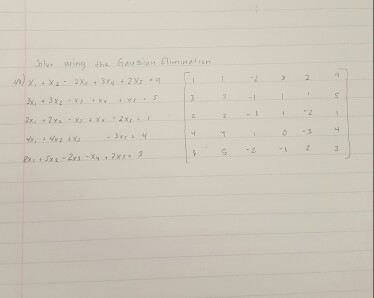 Solve using the Gaussian Elimination
x₁ + x₂ - 2x₃ + 3x₄ + 2x₅ = 9
3x₁ + 3x₂ - x₃ + x₄ + x₅ = 5
2x₁ + 2x₂ - x₃ + x₄ - 2x₅ = 1
4x₁ + 4x₂ + x₃ - 3x₅ = 4
8x₁ + 5x₂ - 2x₃ - x₄ + 2x₅ = 3
1 1 -2 3 2 9
3 3 -1 1 1 5
2 2 -1 1 -2 1
4 4 1 0 -3 4
8 5 -2 -1 2 3